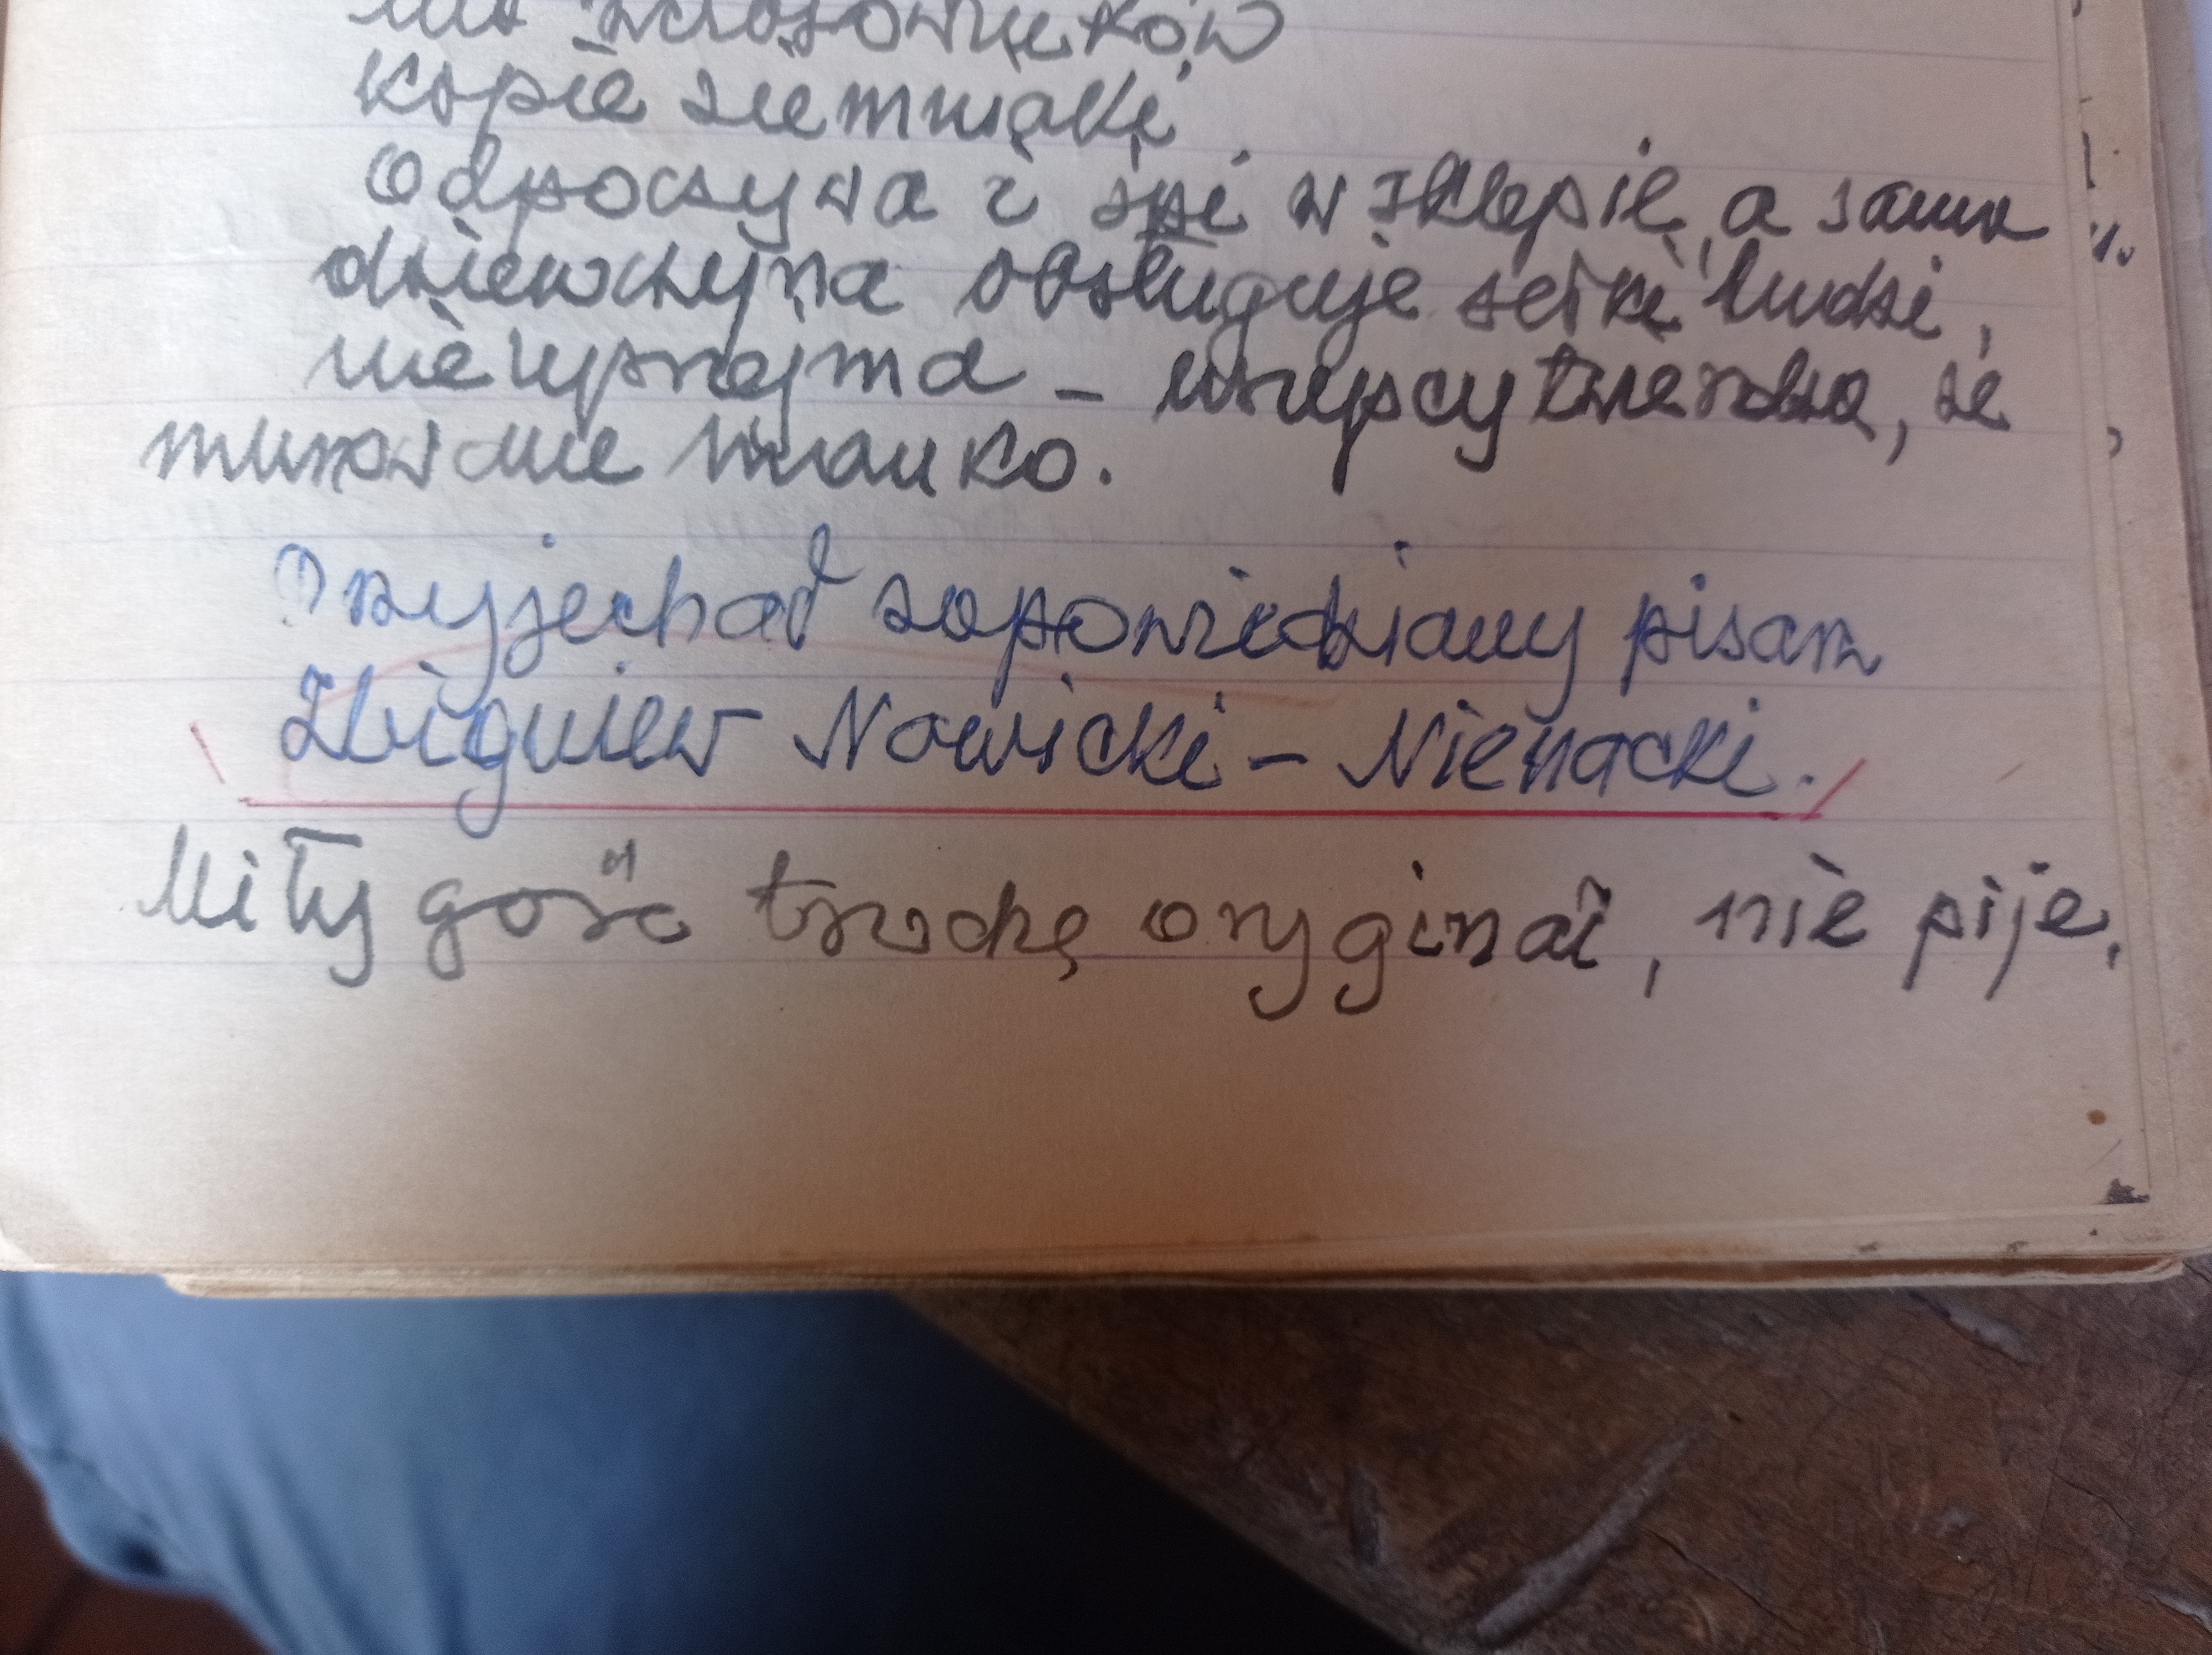 kopie ziemniaki
Odpoczywa i śpi w sklepie, a sama
dziewczyna obsługuje setki ludzi,
nieuprzejma – wszyscy twierdzą, że
murowane manko.
Przyjechał zapowiedziany pisarz
Zbigniew Nowicki – Nienacki.
Miły gość trochę oryginał, nie pije.